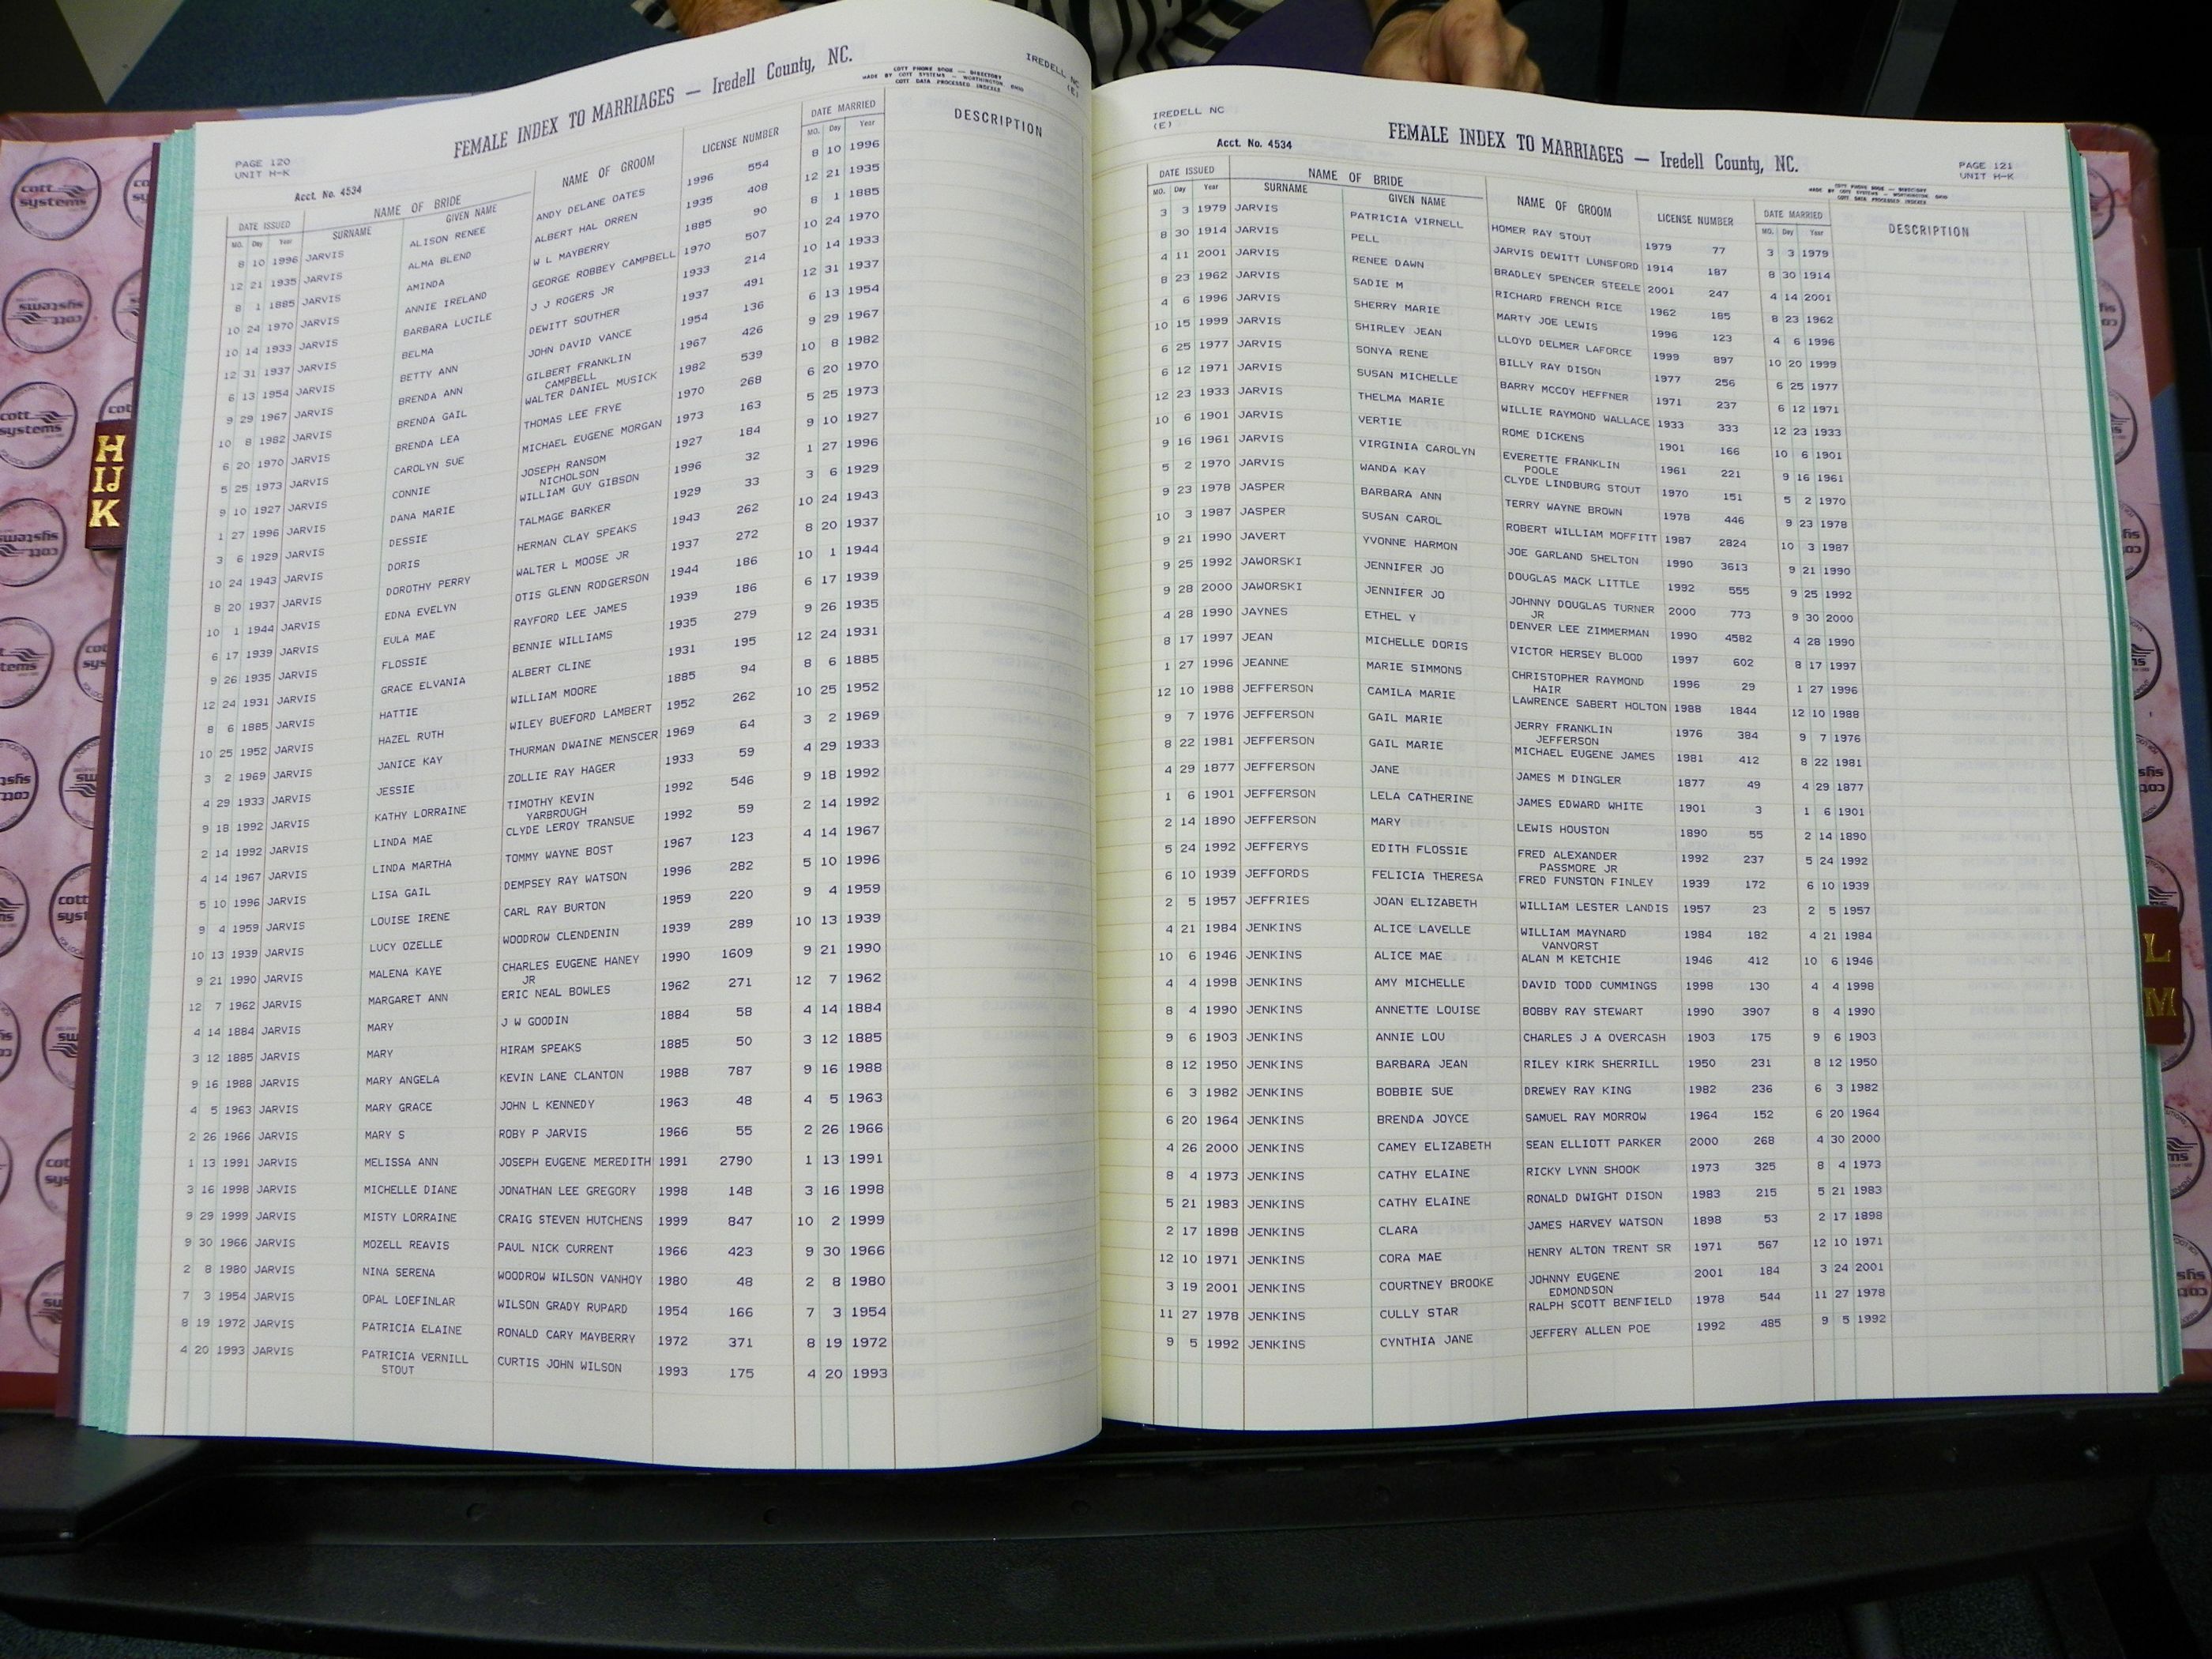 FEMALE INDEX TO MARRIAGES — Iredell County, NC.
COTT PHONE BOOK — DIRECTORY
MADE BY COTT SYSTEMS — WORTHINGTON OHIO
COTT DATA PROCESSED INDEXES
IREDELL NC
(E)
PAGE 120
UNIT H-K
Acct. No. 4534
DATE ISSUED NAME OF BRIDE NAME OF GROOM LICENSE NUMBER DATE MARRIED DESCRIPTION
MO. Day Year SURNAME GIVEN NAME MO. Day Year
8 10 1996 JARVIS ALISON RENEE ANDY DELANE OATES 1996 554 8 10 1996
12 21 1935 JARVIS ALMA BLEND ALBERT HAL ORREN 1935 408 12 21 1935
8 1 1885 JARVIS AMINDA W L MAYBERRY 1885 90 8 1 1885
10 24 1970 JARVIS ANNIE IRELAND GEORGE ROBBEY CAMPBELL 1970 507 10 24 1970
10 14 1933 JARVIS BARBARA LUCILE J J ROGERS JR 1933 214 10 14 1933
12 31 1937 JARVIS BELMA DEWITT SOUTHER 1937 491 12 31 1937
6 13 1954 JARVIS BETTY ANN JOHN DAVID VANCE 1954 136 6 13 1954
9 29 1967 JARVIS BRENDA ANN GILBERT FRANKLIN 1967 426 9 29 1967
CAMPBELL
10 8 1982 JARVIS BRENDA GAIL WALTER DANIEL MUSICK 1982 539 10 8 1982
6 20 1970 JARVIS BRENDA LEA THOMAS LEE FRYE 1970 268 6 20 1970
5 25 1973 JARVIS CAROLYN SUE MICHAEL EUGENE MORGAN 1973 163 5 25 1973
9 10 1927 JARVIS CONNIE JOSEPH RANSOM 1927 184 9 10 1927
NICHOLSON
1 27 1996 JARVIS DANA MARIE WILLIAM GUY GIBSON 1996 32 1 27 1996
3 6 1929 JARVIS DESSIE TALMAGE BARKER 1929 33 3 6 1929
10 24 1943 JARVIS DORIS HERMAN CLAY SPEAKS 1943 262 10 24 1943
8 20 1937 JARVIS DOROTHY PERRY WALTER L MOOSE JR 1937 272 8 20 1937
10 1 1944 JARVIS EDNA EVELYN OTIS GLENN RODGERSON 1944 186 10 1 1944
6 17 1939 JARVIS EULA MAE RAYFORD LEE JAMES 1939 186 6 17 1939
9 26 1935 JARVIS FLOSSIE BENNIE WILLIAMS 1935 279 9 26 1935
12 24 1931 JARVIS GRACE ELVANIA ALBERT CLINE 1931 195 12 24 1931
8 6 1885 JARVIS HATTIE WILLIAM MOORE 1885 94 8 6 1885
10 25 1952 JARVIS HAZEL RUTH WILEY BUEFORD LAMBERT 1952 262 10 25 1952
3 2 1969 JARVIS JANICE KAY THURMAN DWAINE MENSCER 1969 64 3 2 1969
4 29 1933 JARVIS JESSIE ZOLLIE RAY HAGER 1933 59 4 29 1933
9 18 1992 JARVIS KATHY LORRAINE TIMOTHY KEVIN 1992 546 9 18 1992
YARBROUGH
2 14 1992 JARVIS LINDA MAE CLYDE LEROY TRANSUE 1992 59 2 14 1992
4 14 1967 JARVIS LINDA MARTHA TOMMY WAYNE BOST 1967 123 4 14 1967
5 10 1996 JARVIS LISA GAIL DEMPSEY RAY WATSON 1996 282 5 10 1996
9 4 1959 JARVIS LOUISE IRENE CARL RAY BURTON 1959 220 9 4 1959
10 13 1939 JARVIS LUCY OZELLE WOODROW CLENDENIN 1939 289 10 13 1939
9 21 1990 JARVIS MALENA KAYE CHARLES EUGENE HANEY 1990 1609 9 21 1990
JR
12 7 1962 JARVIS MARGARET ANN ERIC NEAL BOWLES 1962 271 12 7 1962
4 14 1884 JARVIS MARY J W GOODIN 1884 58 4 14 1884
3 12 1885 JARVIS MARY HIRAM SPEAKS 1885 50 3 12 1885
9 16 1988 JARVIS MARY ANGELA KEVIN LANE CLANTON 1988 787 9 16 1988
4 5 1963 JARVIS MARY GRACE JOHN L KENNEDY 1963 48 4 5 1963
2 26 1966 JARVIS MARY S ROBY P JARVIS 1966 55 2 26 1966
1 13 1991 JARVIS MELISSA ANN JOSEPH EUGENE MEREDITH 1991 2790 1 13 1991
3 16 1998 JARVIS MICHELLE DIANE JONATHAN LEE GREGORY 1998 148 3 16 1998
9 29 1999 JARVIS MISTY LORRAINE CRAIG STEVEN HUTCHENS 1999 847 10 2 1999
9 30 1966 JARVIS MOZELL REAVIS PAUL NICK CURRENT 1966 423 9 30 1966
2 8 1980 JARVIS NINA SERENA WOODROW WILSON VANHOY 1980 48 2 8 1980
7 3 1954 JARVIS OPAL LOEFINLAR WILSON GRADY RUPARD 1954 166 7 3 1954
8 19 1972 JARVIS PATRICIA ELAINE RONALD CARY MAYBERRY 1972 371 8 19 1972
4 20 1993 JARVIS PATRICIA VERNILL CURTIS JOHN WILSON 1993 175 4 20 1993
STOUT
IREDELL NC
(E)
FEMALE INDEX TO MARRIAGES — Iredell County, NC.
Acct. No. 4534
PAGE 121
UNIT H-K
COTT PHONE BOOK — DIRECTORY
MADE BY COTT SYSTEMS — WORTHINGTON OHIO
COTT DATA PROCESSED INDEXES
DATE ISSUED NAME OF BRIDE NAME OF GROOM LICENSE NUMBER DATE MARRIED DESCRIPTION
MO. Day Year SURNAME GIVEN NAME MO. Day Year
3 3 1979 JARVIS PATRICIA VIRNELL HOMER RAY STOUT 1979 77 3 3 1979
8 30 1914 JARVIS PELL JARVIS DEWITT LUNSFORD 1914 187 8 30 1914
4 11 2001 JARVIS RENEE DAWN BRADLEY SPENCER STEELE 2001 247 4 14 2001
8 23 1962 JARVIS SADIE M RICHARD FRENCH RICE 1962 185 8 23 1962
4 6 1996 JARVIS SHERRY MARIE MARTY JOE LEWIS 1996 123 4 6 1996
10 15 1999 JARVIS SHIRLEY JEAN LLOYD DELMER LAFORCE 1999 897 10 20 1999
6 25 1977 JARVIS SONYA RENE BILLY RAY DISON 1977 256 6 25 1977
6 12 1971 JARVIS SUSAN MICHELLE BARRY MCCOY HEFFNER 1971 237 6 12 1971
12 23 1933 JARVIS THELMA MARIE WILLIE RAYMOND WALLACE 1933 333 12 23 1933
10 6 1901 JARVIS VERTIE ROME DICKENS 1901 166 10 6 1901
9 16 1961 JARVIS VIRGINIA CAROLYN EVERETTE FRANKLIN 1961 221 9 16 1961
POOLE
5 2 1970 JARVIS WANDA KAY CLYDE LINDBURG STOUT 1970 151 5 2 1970
9 23 1978 JASPER BARBARA ANN TERRY WAYNE BROWN 1978 446 9 23 1978
10 3 1987 JASPER SUSAN CAROL ROBERT WILLIAM MOFFITT 1987 2824 10 3 1987
9 21 1990 JAVERT YVONNE HARMON JOE GARLAND SHELTON 1990 3613 9 21 1990
9 25 1992 JAWORSKI JENNIFER JO DOUGLAS MACK LITTLE 1992 555 9 25 1992
9 28 2000 JAWORSKI JENNIFER JO JOHNNY DOUGLAS TURNER 2000 773 9 30 2000
JR
4 28 1990 JAYNES ETHEL Y DENVER LEE ZIMMERMAN 1990 4582 4 28 1990
8 17 1997 JEAN MICHELLE DORIS VICTOR HERSEY BLOOD 1997 602 8 17 1997
1 27 1996 JEANNE MARIE SIMMONS CHRISTOPHER RAYMOND 1996 29 1 27 1996
HAIR
12 10 1988 JEFFERSON CAMILA MARIE LAWRENCE SABERT HOLTON 1988 1844 12 10 1988
9 7 1976 JEFFERSON GAIL MARIE JERRY FRANKLIN 1976 384 9 7 1976
JEFFERSON
8 22 1981 JEFFERSON GAIL MARIE MICHAEL EUGENE JAMES 1981 412 8 22 1981
4 29 1877 JEFFERSON JANE JAMES M DINGLER 1877 49 4 29 1877
1 6 1901 JEFFERSON LELA CATHERINE JAMES EDWARD WHITE 1901 3 1 6 1901
2 14 1890 JEFFERSON MARY LEWIS HOUSTON 1890 55 2 14 1890
5 24 1992 JEFFERYS EDITH FLOSSIE FRED ALEXANDER 1992 237 5 24 1992
PASSMORE JR
6 10 1939 JEFFORDS FELICIA THERESA FRED FUNSTON FINLEY 1939 172 6 10 1939
2 5 1957 JEFFRIES JOAN ELIZABETH WILLIAM LESTER LANDIS 1957 23 2 5 1957
4 21 1984 JENKINS ALICE LAVELLE WILLIAM MAYNARD 1984 182 4 21 1984
VANVORST
10 6 1946 JENKINS ALICE MAE ALAN M KETCHIE 1946 412 10 6 1946
4 4 1998 JENKINS AMY MICHELLE DAVID TODD CUMMINGS 1998 130 4 4 1998
8 4 1990 JENKINS ANNETTE LOUISE BOBBY RAY STEWART 1990 3907 8 4 1990
9 6 1903 JENKINS ANNIE LOU CHARLES J A OVERCASH 1903 175 9 6 1903
8 12 1950 JENKINS BARBARA JEAN RILEY KIRK SHERRILL 1950 231 8 12 1950
6 3 1982 JENKINS BOBBIE SUE DREWEY RAY KING 1982 236 6 3 1982
6 20 1964 JENKINS BRENDA JOYCE SAMUEL RAY MORROW 1964 152 6 20 1964
4 26 2000 JENKINS CAMEY ELIZABETH SEAN ELLIOTT PARKER 2000 268 4 30 2000
8 4 1973 JENKINS CATHY ELAINE RICKY LYNN SHOOK 1973 325 8 4 1973
5 21 1983 JENKINS CATHY ELAINE RONALD DWIGHT DISON 1983 215 5 21 1983
2 17 1898 JENKINS CLARA JAMES HARVEY WATSON 1898 53 2 17 1898
12 10 1971 JENKINS CORA MAE HENRY ALTON TRENT SR 1971 567 12 10 1971
3 19 2001 JENKINS COURTNEY BROOKE JOHNNY EUGENE 2001 184 3 24 2001
EDMONDSON
11 27 1978 JENKINS CULLY STAR RALPH SCOTT BENFIELD 1978 544 11 27 1978
9 5 1992 JENKINS CYNTHIA JANE JEFFERY ALLEN POE 1992 485 9 5 1992
H
IJ
K
L
M
cott
systems